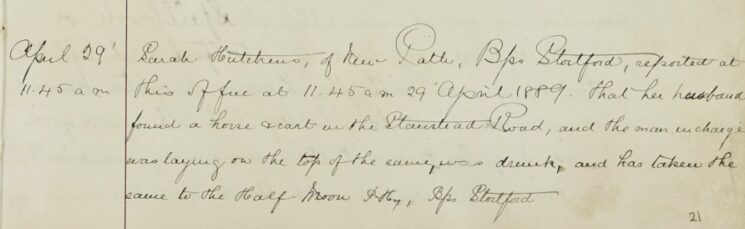 April 29' Sarah Hutchins, of New Path, Bps Stortford, reported at
11.45 am this office at 11.45 am 29 April 1889. That her husband
found a horse & cart in the Stanstead Road, and the man in charge
was laying on the top of the same, was drunk, and has taken the
same to the Half Moon P Hy, Bps Stortford
21